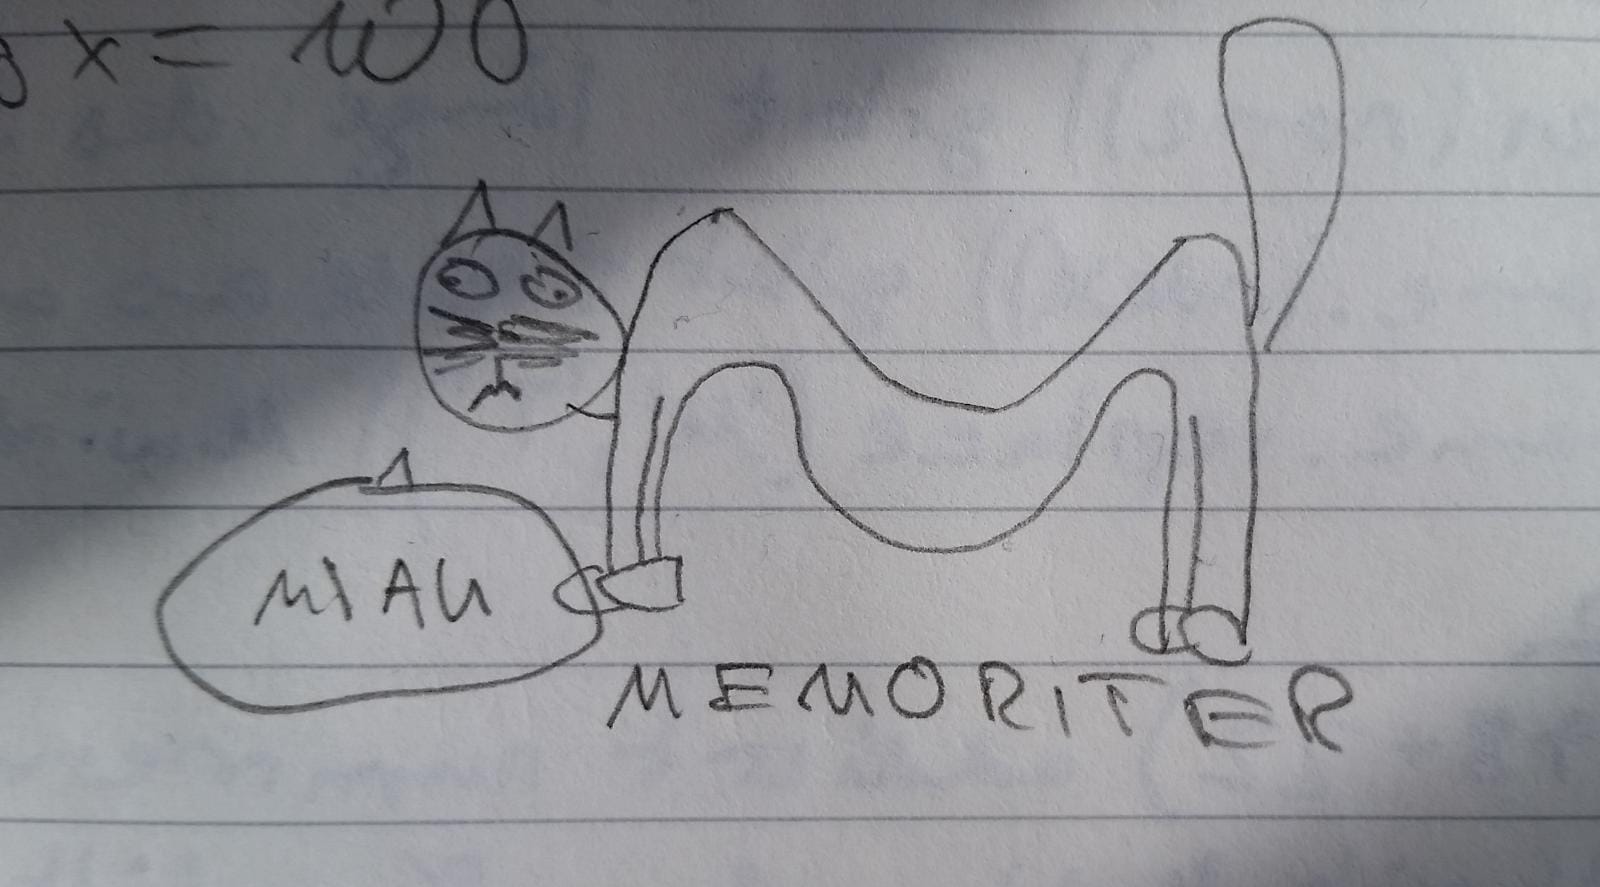 x = 100
MIAU
MEMORITER